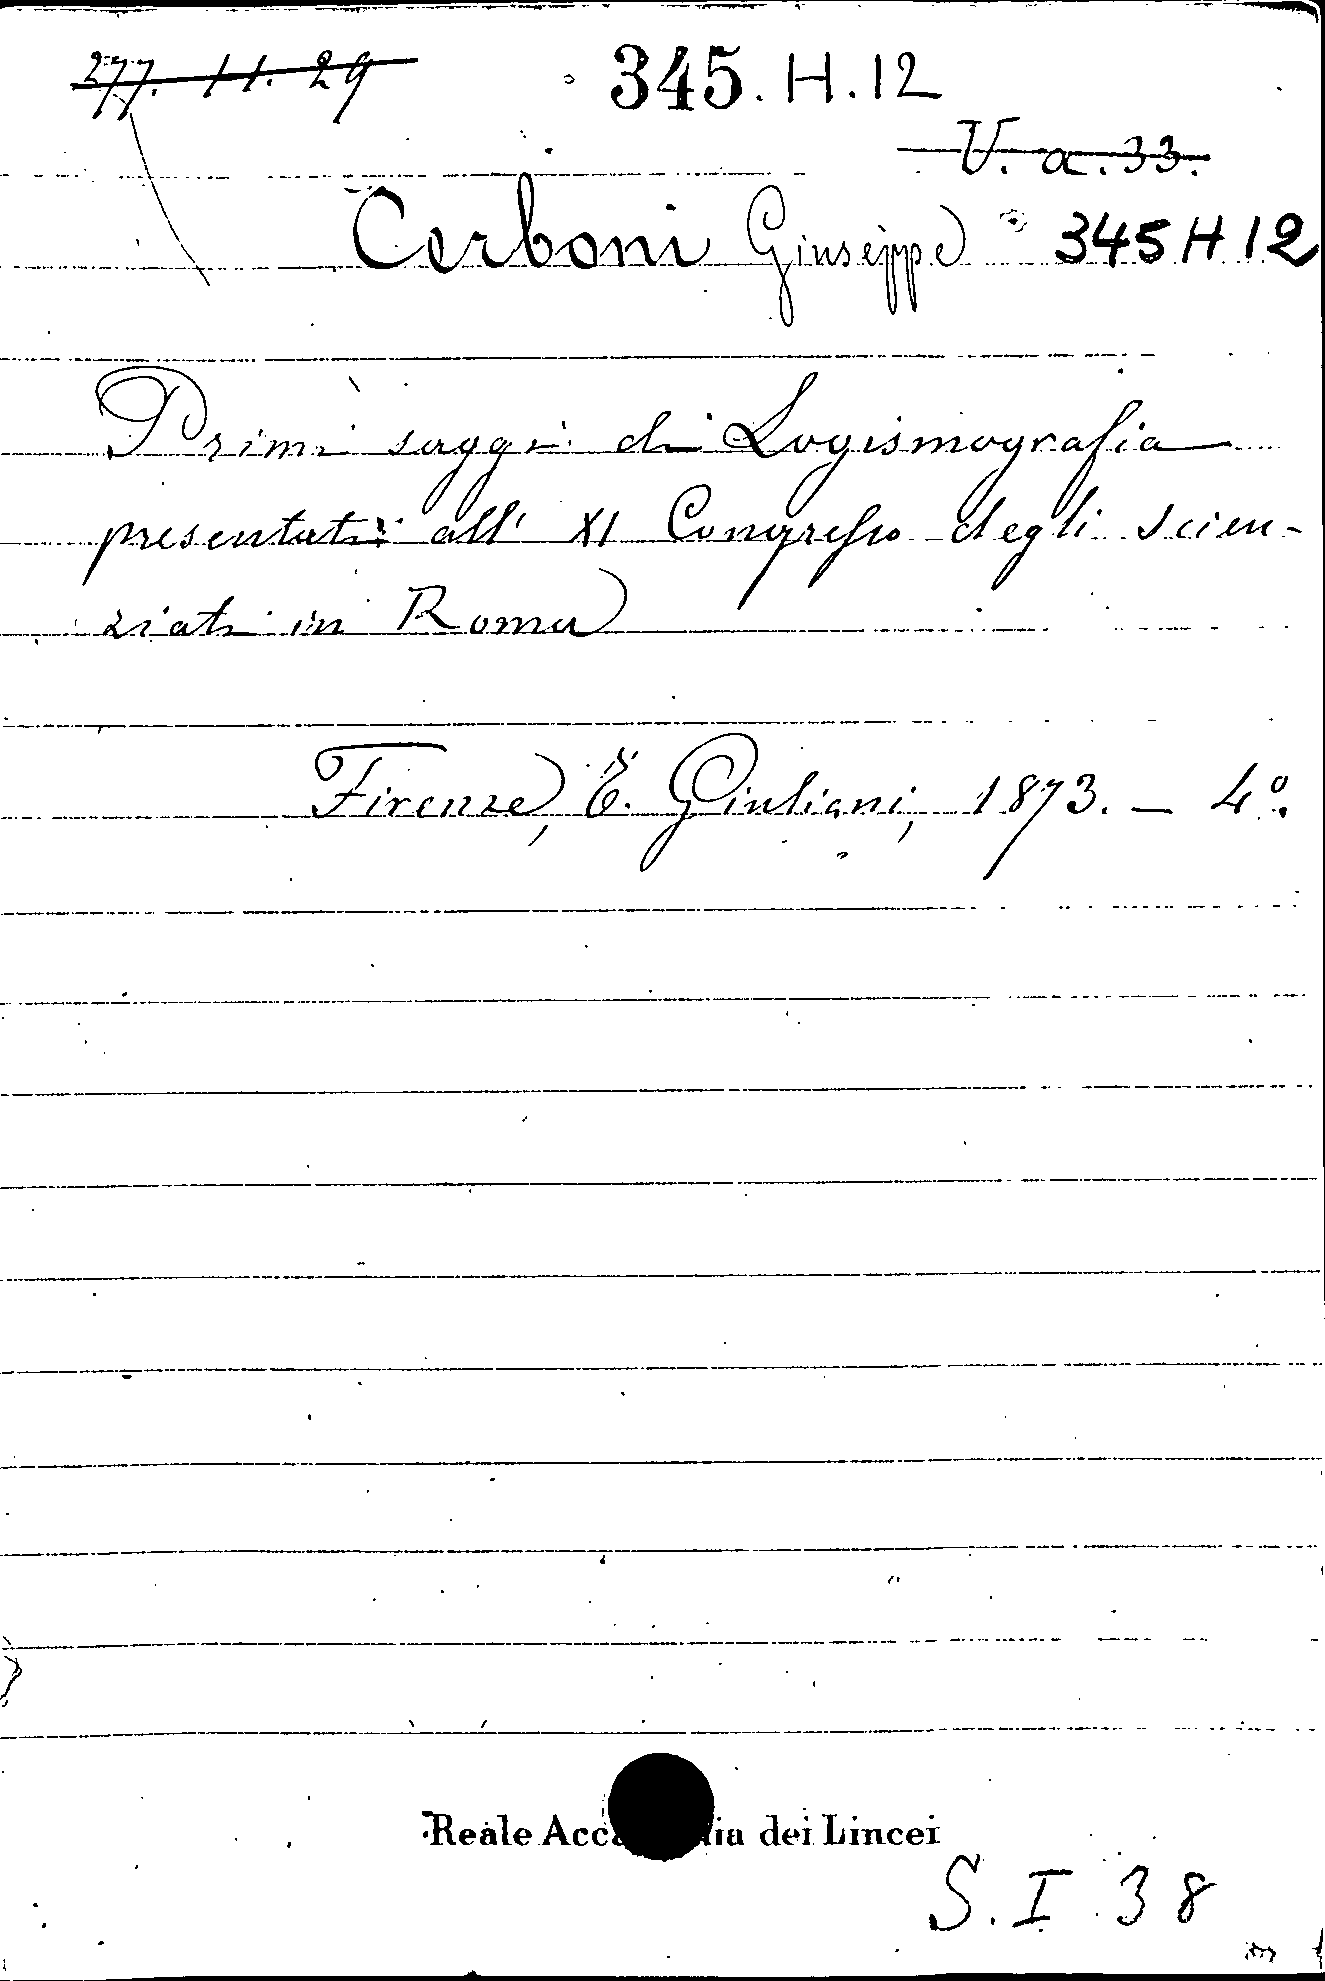 277. 11. 29
345. H. 12
V. a. 33.
Cerboni Giuseppe 345 H 12
Primi saggi di Logismografia
presentati all' XI Congresso degli scien-
ziati in Roma
Firenze, E. Giuliani, 1873. — 4º.
Reale Acca ia dei Lincei
S. I 38